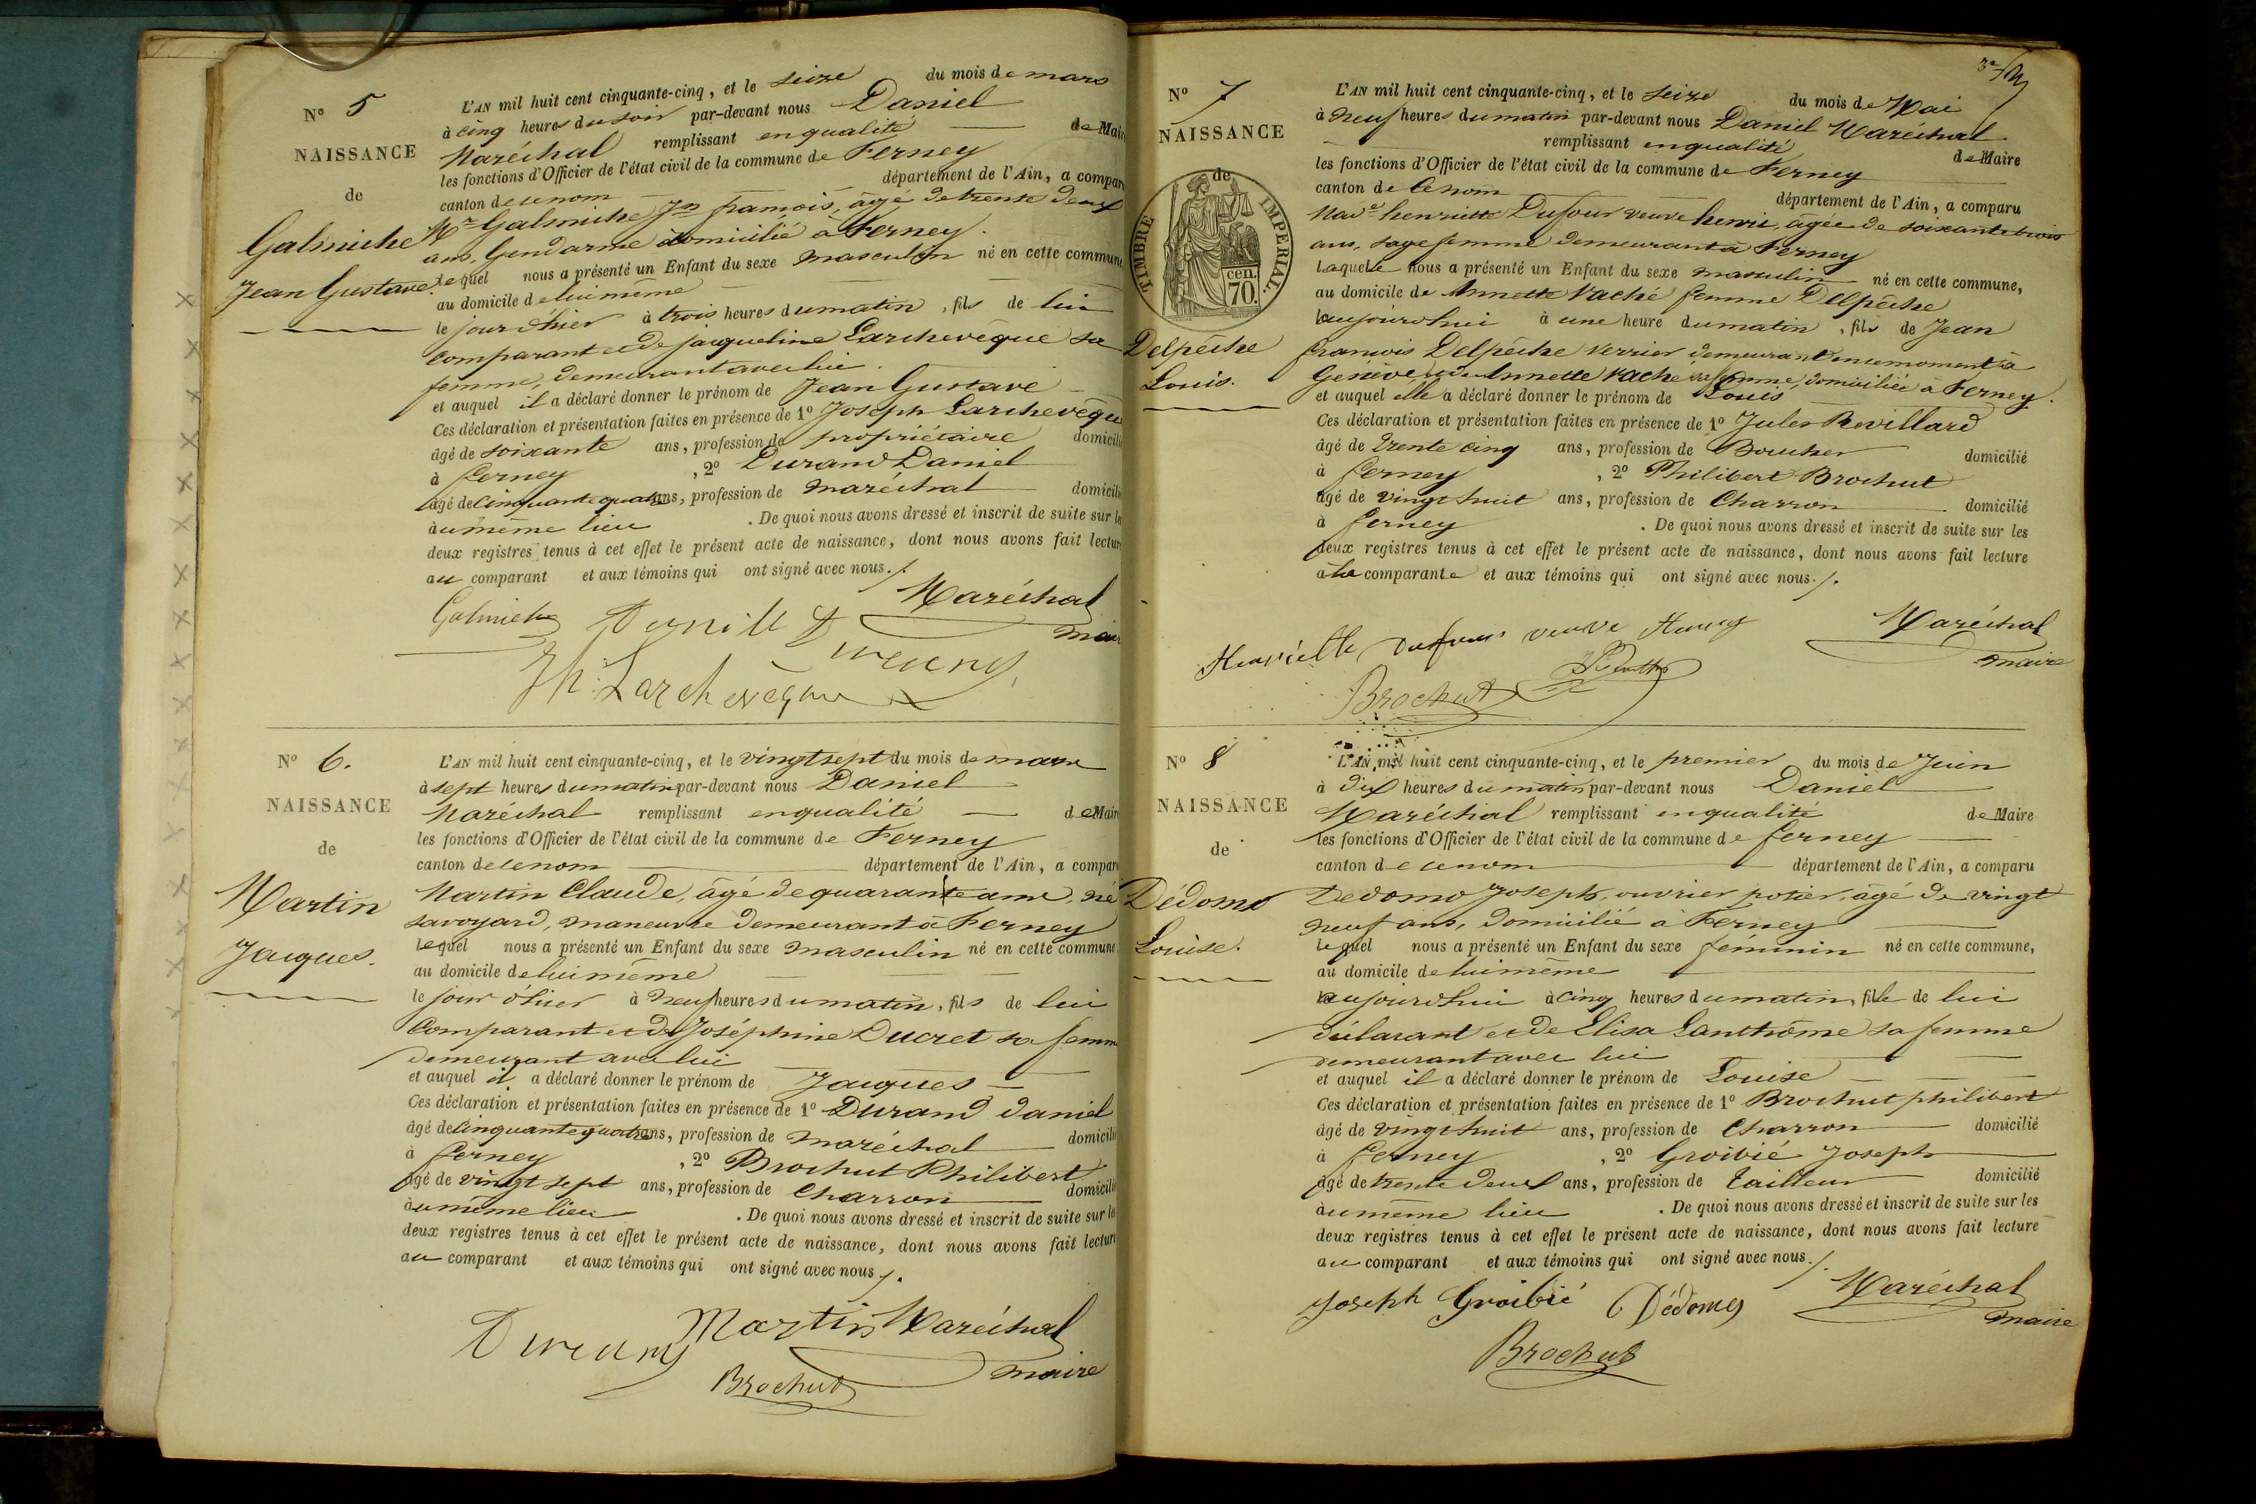 No 5
NAISSANCE
de
Galmiche
Jean Gustave
L'AN mil huit cent cinquante-cinq, et le seize du mois de mars
à cinq heures du soir par-devant nous Daniel
Maréchal remplissant en qualité de Maire
les fonctions d'Officier de l'état civil de la commune de Ferney
canton de ce nom département de l'Ain, a compar
Mr Galmiche Jn françois, âgé de trente deux
ans, Gendarme domicilié à Ferney.
lequel nous a présenté un Enfant du sexe masculin né en cette commune
au domicile de lui même
le jour d'hier à trois heures du matin, fils de lui
comparant et de jacqueline Larchevêque sa
femme, demeurant avec lui.
et auquel il a déclaré donner le prénom de Jean Gustave
Ces déclaration et présentation faites en présence de 1o Joseph Larchevêque
âgé de soixante ans, profession de propriétaire domicilié
à ferney, 2o Durand Daniel
âgé de cinquante quatre ans, profession de maréchal domicilié
à u même lieu. De quoi nous avons dressé et inscrit de suite sur les
deux registres tenus à cet effet le présent acte de naissance, dont nous avons fait lecture
au comparant et aux témoins qui ont signé avec nous./.
Galmiche Durand Maréchal
maire
Larchevêque
No 6.
NAISSANCE
de
Martin
Jacques.
L'AN mil huit cent cinquante-cinq, et le vingt sept du mois de mars
à sept heures du matin par-devant nous Daniel
Maréchal remplissant en qualité de Maire
les fonctions d'Officier de l'état civil de la commune de Ferney
canton de ce nom département de l'Ain, a comparu
Martin Claude, âgé de quarante ans, né
savoyard, manœuvre demeurant à Ferney
lequel nous a présenté un Enfant du sexe masculin né en cette commune
au domicile de lui même
le jour d'hier à neuf heures du matin, fils de lui
comparant et de Joséphine Ducret sa femme
demeurant avec lui
et auquel il a déclaré donner le prénom de Jacques
Ces déclaration et présentation faites en présence de 1o Durand daniel
âgé de cinquante quatre ans, profession de maréchal domicilié
à ferney, 2o Brochut Philibert
âgé de vingt sept ans, profession de Charron domicilié
à u même lieu. De quoi nous avons dressé et inscrit de suite sur les
deux registres tenus à cet effet le présent acte de naissance, dont nous avons fait lecture
au comparant et aux témoins qui ont signé avec nous./.
Durand Martin Maréchal
Brochut maire
No 7
NAISSANCE
de
TIMBRE IMPERIAL.
cen.
70.
Delpêche
Louis.
L'AN mil huit cent cinquante-cinq, et le seize du mois de Mai
à neuf heures du matin par-devant nous Daniel Maréchal
remplissant en qualité de Maire
les fonctions d'Officier de l'état civil de la commune de Ferney
canton de ce nom département de l'Ain, a comparu
Made henriette Dufour veuve henri, âgée de soixante trois
ans, sage femme demeurant à Ferney
laquelle nous a présenté un Enfant du sexe masculin né en cette commune,
au domicile de Annette Vaché femme Delpêche
aujourd'hui à une heure du matin, fils de Jean
francois Delpêche verrier demeurant en ce moment à
Genève et de Annette Vaché sa femme, domiciliée à Ferney.
et auquel elle a déclaré donner le prénom de Louis
Ces déclaration et présentation faites en présence de 1o Jules Revillard
âgé de trente cinq ans, profession de Boucher domicilié
à ferney, 2o Philibert Brochut
âgé de vingt huit ans, profession de Charron domicilié
à ferney. De quoi nous avons dressé et inscrit de suite sur les
deux registres tenus à cet effet le présent acte de naissance, dont nous avons fait lecture
à la comparante et aux témoins qui ont signé avec nous./.
Henriette Dufour veuve Henry Maréchal
maire
Brochut
No 8
NAISSANCE
de
Dédomo
Louise.
L'AN mil huit cent cinquante-cinq, et le premier du mois de Juin
à dix heures du matin par-devant nous Daniel
Maréchal remplissant en qualité de Maire
les fonctions d'Officier de l'état civil de la commune de ferney
canton de ce nom département de l'Ain, a comparu
Dedomo Joseph, ouvrier potier, âgé de vingt
neuf ans, domicilié à Ferney
lequel nous a présenté un Enfant du sexe féminin né en cette commune,
au domicile de lui même
aujourd'hui à cinq heures du matin, fille de lui
déclarant et de Elisa Lanthôme sa femme
demeurant avec lui
et auquel il a déclaré donner le prénom de Louise
Ces déclaration et présentation faites en présence de 1o Brochut philibert
âgé de vingt huit ans, profession de Charron domicilié
à ferney, 2o Groibié Joseph
âgé de trente deux ans, profession de Tailleur domicilié
à u même lieu. De quoi nous avons dressé et inscrit de suite sur les
deux registres tenus à cet effet le présent acte de naissance, dont nous avons fait lecture
au comparant et aux témoins qui ont signé avec nous./.
Joseph Groibié Dédomo Maréchal
maire
Brochut